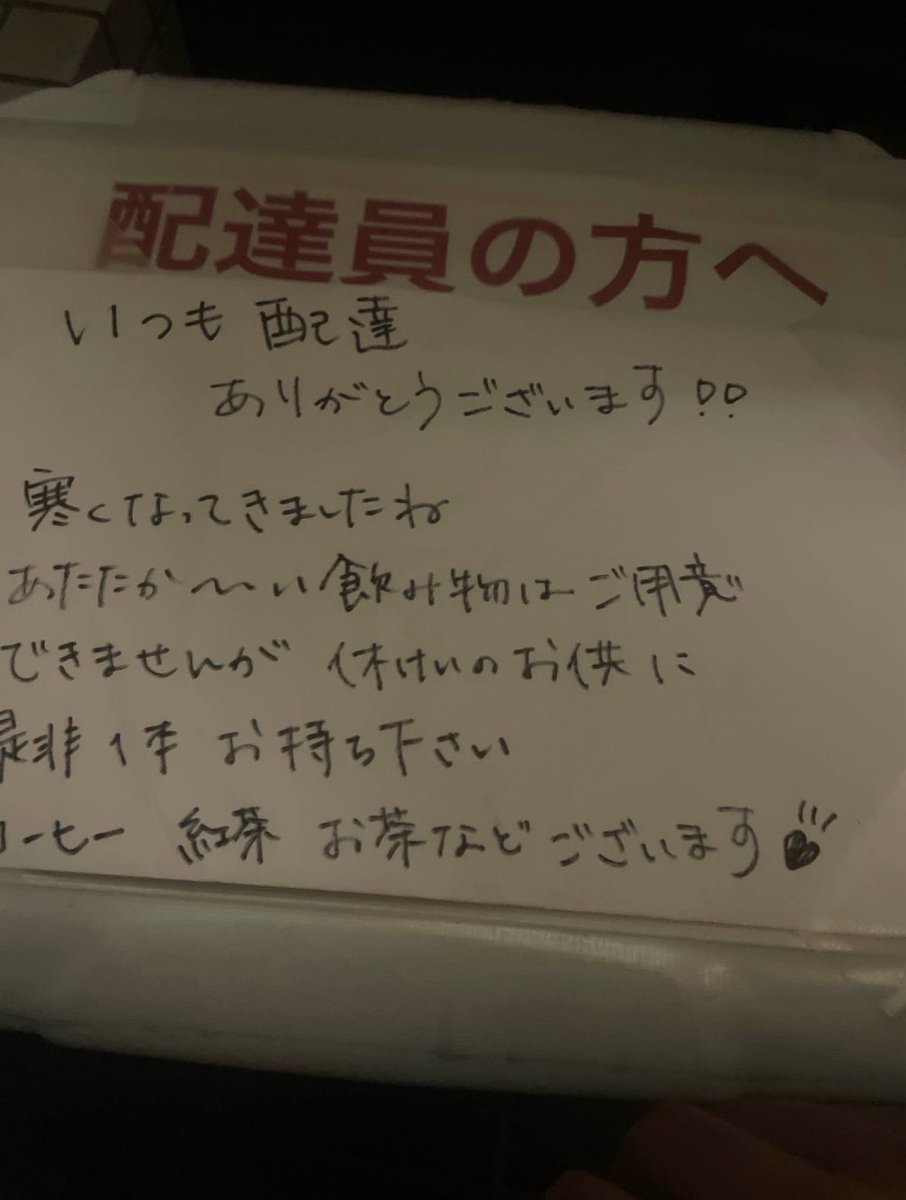 配達員の方へ
いつも 配達
ありがとうございます!!
寒くなってきましたね
あたたか〜い飲み物はご用意
できませんが 休けいのお供に
是非 1本 お持ち下さい
コーヒー 紅茶 お茶などございます